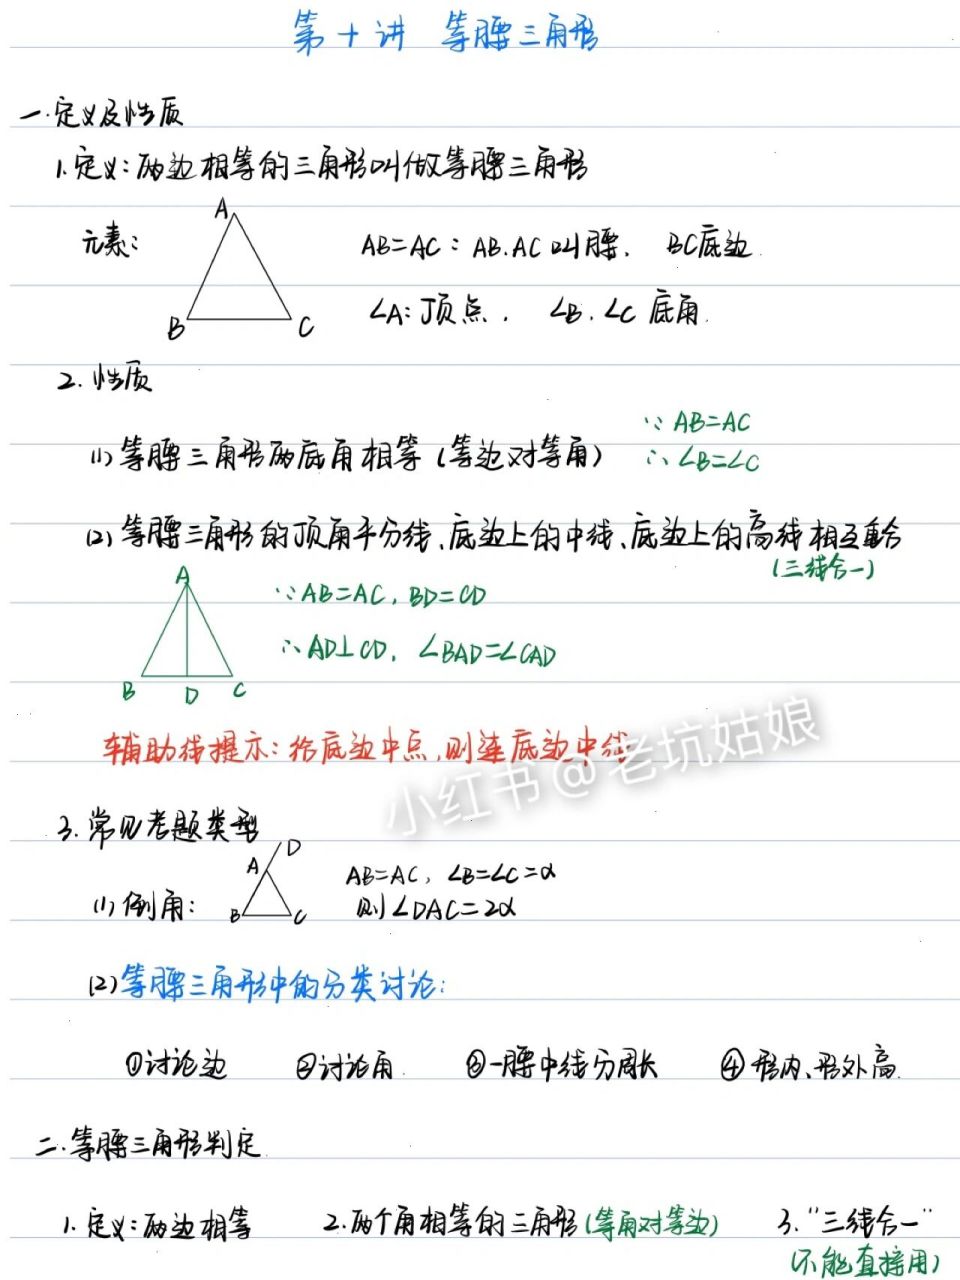 第十讲 等腰三角形
一.定义及性质
1.定义:两边相等的三角形叫做等腰三角形
元素:
A
B
C
AB=AC:AB.AC叫腰. BC底边.
∠A:顶点. ∠B.∠C底角.
2.性质
(1)等腰三角形两底角相等(等边对等角)
∵AB=AC
∴∠B=∠C
(2)等腰三角形的顶角平分线、底边上的中线、底边上的高线相互重合
(三线合一)
A
B
D
C
∵AB=AC,BD=CD
∴AD⊥CD,∠BAD=∠CAD
辅助线提示:给底边中点,则连底边中线
小红书@老坑姑娘
3.常见考题类型
(1)倒角:
D
A
B
C
AB=AC,∠B=∠C=α
则∠DAC=2α
(2)等腰三角形中的分类讨论:
①讨论边 ②讨论角. ③一腰中线分周长 ④形内、形外高.
二.等腰三角形判定
1.定义:两边相等 2.两个角相等的三角形(等角对等边) 3."三线合一"
(不能直接用)